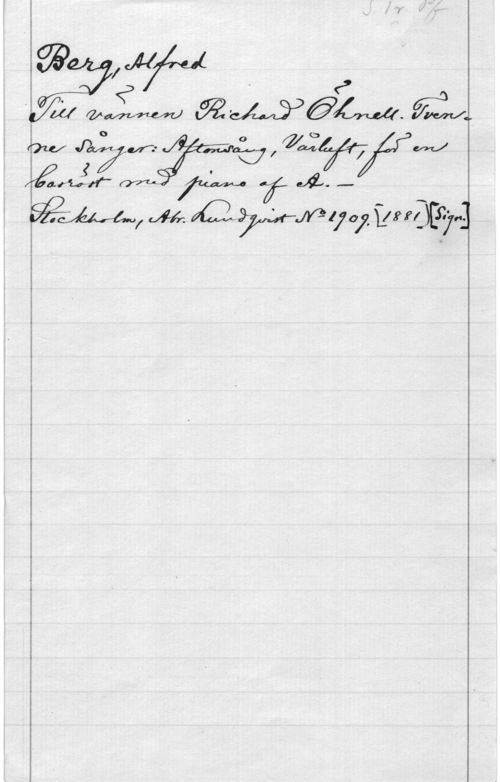 S. 1 r Pf
Berg, Alfred
Till vännen Richard Öhnell. Tven-
ne sånger: Aftonsång, Vårluft, för en
basröst med piano af A. —
Stockholm, Abr. Lundqvist No 1909. [1881] [Sign.]